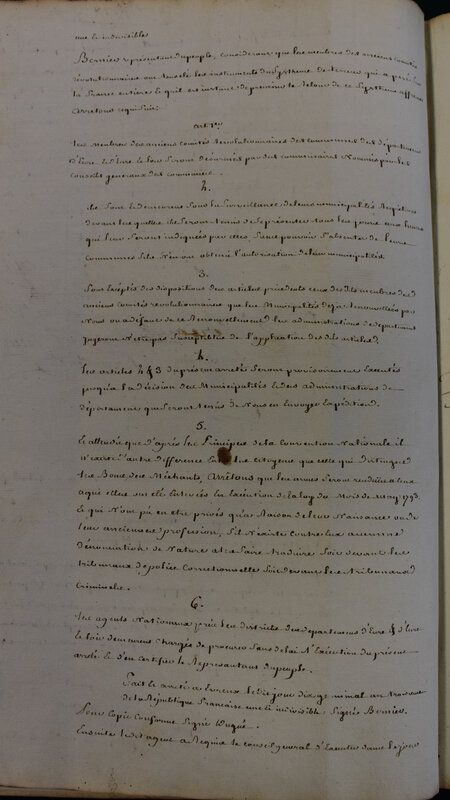 une et indivisible
Bernier representant du peuple, considerant que les membres des anciens comités
révolutionnaires ont tous été les instruments du systheme de terreur qui a
la france entiere et qu'il est instant de prévenir le retour de ce systheme affreux
arretons ce qui suit
art. 1er
Les membres des anciens comités révolutionnaires des communes des départements
d'Eure et d'Eure et Loir seront désarmés par des commissaires nommés par les
conseils generaux des communes
2.
ils sont et demeurent sous la surveillance de leurs municipalités respectives
devant lesquelles ils seront tenus de se présenter tous les jours aux heures
qui leur seront indiquées par elles, sans pouvoir s'absenter de leurs
communes s'ils n'en ont obtenu l'autorisation de leur municipalités
3.
Sont exceptés des dispositions des articles précédents ceux des dits membres des
anciens comités révolutionnaires que les municipalités déjà renouvellées par
nous ou a défaut de ce renouvellement les administrations de département
jugeront n'etre pas susceptibles de l'application des dits articles
4.
Les articles 2 & 3 du présent arreté seront provisoirement executés
jusqu'a la décision des municipalités et des administrations de
département qui seront tenus de nous en envoyer expédition
5.
Et attendu que d'après les Principes de la convention Nationale il
n'existe d'autre difference entre les citoyens que celle qui distingue
les Bons des Méchants, arretons que les armes seront rendues a ceux
a qui elles ont été enlevées en exécution de la loy du mois de may 1793.
et qui n'ont pu en etre privés qu'a raison de leur naissance ou de
leur ancienne profession, s'il n'existe contre eux aucunne
dénomination de nature a les faire traduire soit devant les
tribunaux de police correctionnelle soit devant les tribunaux
criminels.
6.
Les agents nationaux près les districts des départements d'Eure & d'Eure
et Loir demeurent chargés de procurer sans delai l'Exécution du présent
arreté et d'en certifier le Représentant du peuple.
Fait et arreté a Evreux le jour dix germinal an trois
de la République francaise une et indivisible Signé Bernier
Pour copie conforme Signé Dugué.
Ensuite ledit agent a requis le conseil general d'Executer dans le jour